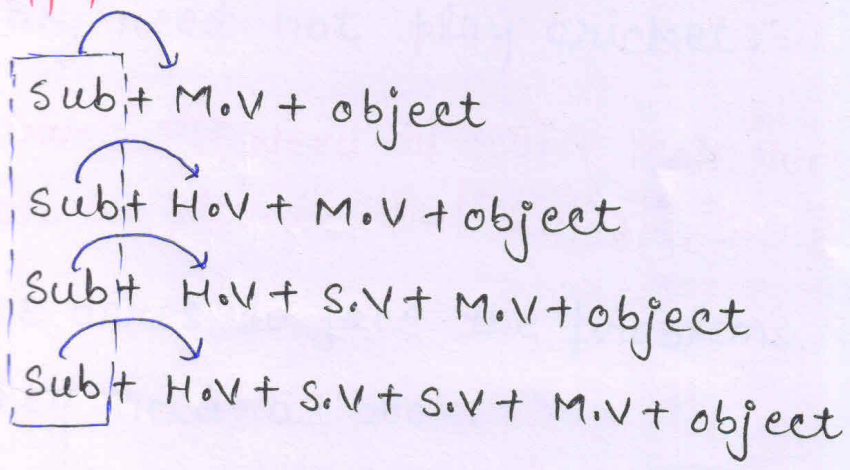 Sub + M.V + object
Sub + H.V + M.V + object
Sub + H.V + S.V + M.V + object
Sub + H.V + S.V + S.V + M.V + object